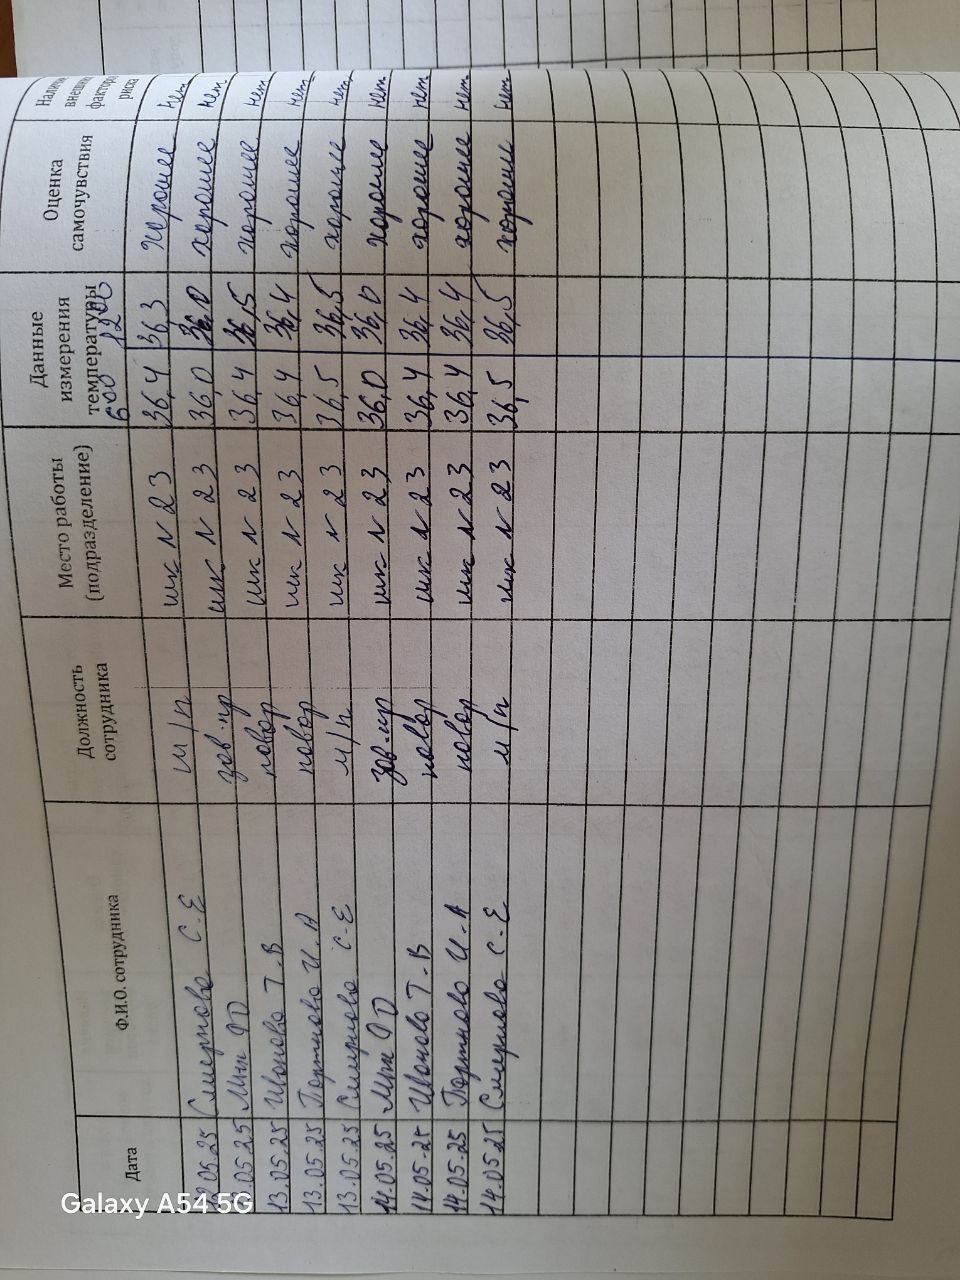 Дата Ф.И.О. сотрудника Должность сотрудника Место работы (подразделение) Данные измерения температуры 6 00 12 00 Оценка самочувствия Наличие внешних фактора риска
05.25 Смирнова С.Е м/п шк N 23 36,4 36,3 хорошее нет
05.25 зав.пр шк N 23 36,0 36,0 хорошее нет
13.05.25 Иванова Т.В повар шк N 23 36,4 36,5 хорошее нет
13.05.25 Портнова И.А повар шк N 23 36,4 36,4 хорошее нет
13.05.25 Смирнова С.Е м/п шк N 23 36,5 36,5 хорошее нет
14.05.25 зав.пр шк N 23 36,0 36,0 хорошее нет
14.05.25 Иванова Т.В повар шк N 23 36,4 36,4 хорошее нет
14.05.25 Портнова И.А повар шк N 23 36,4 36,4 хорошее нет
14.05.25 Смирнова С.Е м/п шк N 23 36,5 36,5 хорошее нет
Galaxy A54 5G